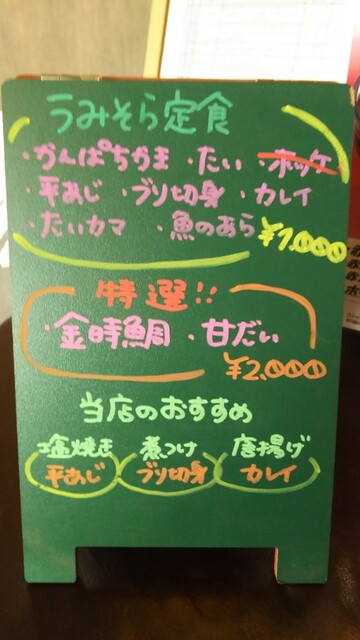 うみそら定食
・かんぱちかま ・たい ・ホッケ
・平あじ ・ブリ切身 ・カレイ
・たいカマ ・魚のあら ¥1.000
特選!!
・金時鯛 ・甘だい
¥2.000
当店のおすすめ
塩焼き 煮つけ 唐揚げ
平あじ ブリ切身 カレイ